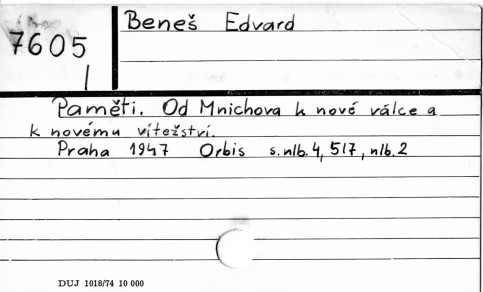 Beneš Edvard
7605
Paměti. Od Mnichova k nové válce a
k novému vítežství.
Praha 1947 Orbis s.nlb.4, 517, nlb.2
DUJ 1018/74 10 000